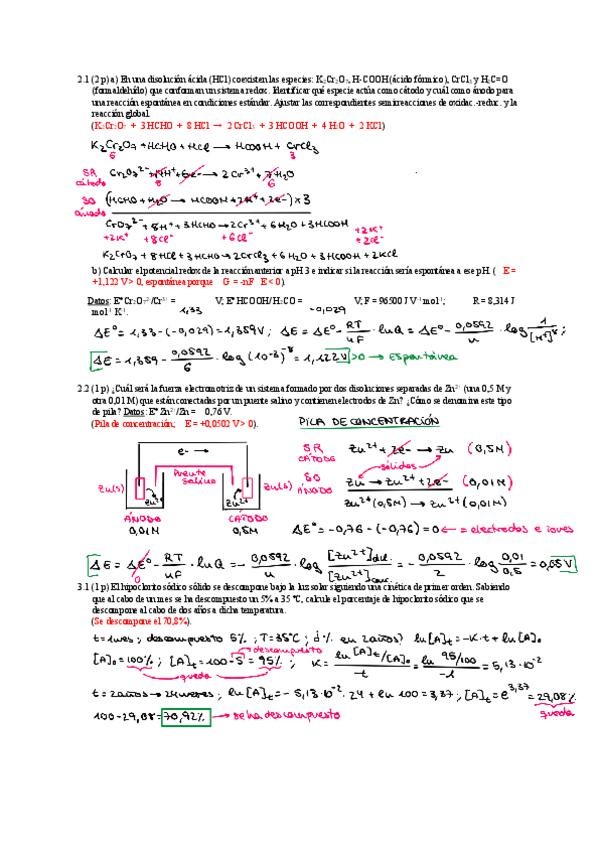 2.1 (2 p) a) En una disolución ácida (HCl) coexisten las especies: K₂Cr₂O₇, H-COOH (ácido fórmico), CrCl₃ y H₂C=O
(formaldehído) que conforman un sistema redox. Identificar qué especie actúa como cátodo y cuál como ánodo para
una reacción espontánea en condiciones estándar. Ajustar las correspondientes semirreacciones de oxidac.-reduc. y la
reacción global.
(K₂Cr₂O₇ + 3 HCHO + 8 HCl → 2 CrCl₃ + 3 HCOOH + 4 H₂O + 2 KCl)
K₂Cr₂O₇ + HCHO + HCl → HCOOH + CrCl₃
6 3
SR
cátodo
Cr₂O₇²⁻ + 14H⁺ + 6e⁻ → 2Cr³⁺ + 7H₂O
8 6
SO
ánodo
(HCHO + H₂O → HCOOH + 2H⁺ + 2e⁻) x 3
CrO₇²⁻ + 8H⁺ + 3HCHO → 2Cr³⁺ + 6H₂O + 3HCOOH
+2K⁺ +8Cl⁻ +6Cl⁻ +2K⁺ +2Cl⁻
K₂CrO₇ + 8HCl + 3HCHO → 2CrCl₃ + 6H₂O + 3HCOOH + 2KCl
b) Calcular el potencial redox de la reacción anterior a pH 3 e indicar si la reacción sería espontánea a ese pH. ( E =
+1,122 V > 0, espontánea porque G = -nF E < 0).
Datos: Eº Cr₂O₇²⁻/Cr³⁺ = 1,33 V; Eº HCOOH/H₂CO = -0,029 V; F = 96500 J V⁻¹ mol⁻¹; R = 8,314 J
mol⁻¹ K⁻¹.
ΔEº = 1,33 - (-0,029) = 1,359 V ; ΔE = ΔEº - RT/nF · ln Q = ΔEº - 0,0592/n · log 1/[H⁺]⁸ ;
ΔE = 1,359 - 0,0592/6 · log (10⁻³)⁻⁸ = 1,122 V > 0 → espontánea
2.2 (1 p) ¿Cuál será la fuerza electromotriz de un sistema formado por dos disoluciones separadas de Zn²⁺ (una 0,5 M y
otra 0,01 M) que están conectadas por un puente salino y contienen electrodos de Zn? ¿Cómo se denomina este tipo
de pila? Datos: Eº Zn²⁺/Zn = 0,76 V.
(Pila de concentración; E = +0,0502 V > 0).
PILA DE CONCENTRACIÓN
e⁻ →
Puente
Salino
Zn(s)
Zn²⁺
Zn²⁺
Zn(s)
ÁNODO
0,01M
CÁTODO
0,5M
SR
CÁTODO
Zn²⁺ + 2e⁻ → Zn (0,5M)
sólidos
SO
ÁNODO
Zn → Zn²⁺ + 2e⁻ (0,01M)
Zn²⁺(0,5M) → Zn²⁺(0,01M)
ΔEº = -0,76 - (-0,76) = 0 ← = electrodos e iones
ΔE = ΔEº - RT/nF · ln Q = - 0,0592/n · log [Zn²⁺]dil./[Zn²⁺]conc. = - 0,0592/2 · log 0,01/0,5 = 0,05 V
0
3.1 (1 p) El hipoclorito sódico sólido se descompone bajo la luz solar siguiendo una cinética de primer orden. Sabiendo
que al cabo de un mes se ha descompuesto un 5% a 35 ºC, calcule el porcentaje de hipoclorito sódico que se
descompone al cabo de dos años a dicha temperatura.
(Se descompone el 70,8%).
t = 1 mes ; descompuesto 5% ; T = 35ºC ; ¿% en 2 años? ln[A]t = -K·t + ln[A]₀
descompuesto
[A]₀ = 100% ; [A]t = 100 - 5 = 95% ; K = ln[A]t/[A]₀ / -t = ln 95/100 / -1 = 5,13·10⁻²
queda
t = 2 años → 24 meses ; ln[A]t = -5,13·10⁻² · 24 + ln 100 = 3,37 ; [A]t = e³,³⁷ = 29,08%
queda
100 - 29,08 = 70,92% → se ha descompuesto